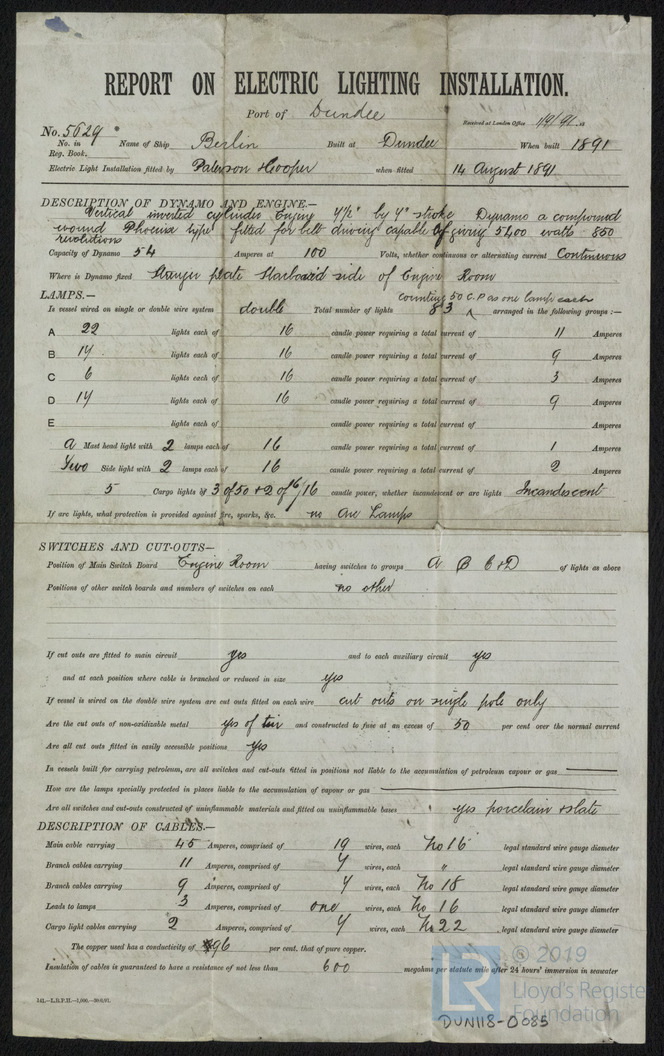 REPORT ON ELECTRIC LIGHTING INSTALLATION.
Port of Dundee
Received at London Office 1/9/91
No. 5629
No. in Reg. Book. Name of Ship Berlin Built at Dundee When built 1891
Electric Light Installation fitted by Paterson & Cooper when fitted 14 August 1891
DESCRIPTION OF DYNAMO AND ENGINE.—
Vertical inverted cylinder Engine by stroke Dynamo a compound
wound Phoenix type fitted for belt driving capable of giving 5400 watts 850
revolutions
Capacity of Dynamo 54 Amperes at 100 Volts, whether continuous or alternating current Continuous
Where is Dynamo fixed plate Starboard side of Engine Room
LAMPS.—
counting 50 C.P as one lamp each
Is vessel wired on single or double wire system double Total number of lights 83 arranged in the following groups :—
A 22 lights each of 16 candle power requiring a total current of 11 Amperes
B 14 lights each of 16 candle power requiring a total current of 9 Amperes
C 6 lights each of 16 candle power requiring a total current of 3 Amperes
D 14 lights each of 16 candle power requiring a total current of 9 Amperes
E lights each of candle power requiring a total current of Amperes
A Mast head light with 2 lamps each of 16 candle power requiring a total current of 1 Amperes
Two Side light with 2 lamps each of 16 candle power requiring a total current of 2 Amperes
5 Cargo lights of 3 of 50 & 2 of 6/16 candle power, whether incandescent or arc lights Incandescent
If arc lights, what protection is provided against fire, sparks, &c. no Arc Lamps
SWITCHES AND CUT-OUTS—
Position of Main Switch Board Engine Room having switches to groups A B C & D of lights as above
Positions of other switch boards and numbers of switches on each no other
If cut outs are fitted to main circuit yes and to each auxiliary circuit yes
and at each position where cable is branched or reduced in size yes
If vessel is wired on the double wire system are cut outs fitted on each wire cut outs on single pole only
Are the cut outs of non-oxidizable metal yes of tin and constructed to fuse at an excess of 50 per cent over the normal current
Are all cut outs fitted in easily accessible positions yes
In vessels built for carrying petroleum, are all switches and cut-outs fitted in positions not liable to the accumulation of petroleum vapour or gas
How are the lamps specially protected in places liable to the accumulation of vapour or gas
Are all switches and cut-outs constructed of uninflammable materials and fitted on uninflammable bases yes porcelain & slate
DESCRIPTION OF CABLES.—
Main cable carrying 45 Amperes, comprised of 19 wires, each No 16 legal standard wire gauge diameter
Branch cables carrying 11 Amperes, comprised of 7 wires, each " legal standard wire gauge diameter
Branch cables carrying 9 Amperes, comprised of 7 wires, each No 18 legal standard wire gauge diameter
Leads to lamps 3 Amperes, comprised of one wires, each No 16 legal standard wire gauge diameter
Cargo light cables carrying 2 Amperes, comprised of 7 wires, each No 22 legal standard wire gauge diameter
The copper used has a conductivity of 96 per cent. that of pure copper.
Insulation of cables is guaranteed to have a resistance of not less than 600 megohms per statute mile after 24 hours' immersion in seawater
© 2019
LR Lloyd's Register
Foundation
DUN118-0085